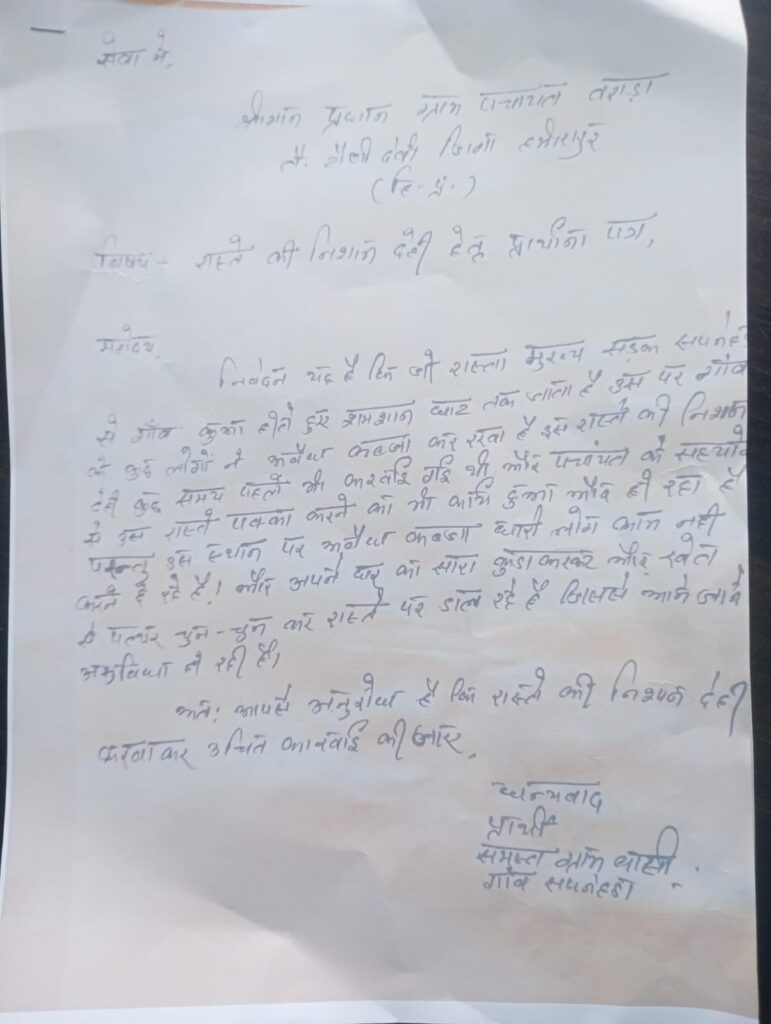 सेवा में,
श्रीमान प्रधान ग्राम पंचायत तराड़ा
तै. टौणी देवी जिला हमीरपुर
(हि.प्र.)
विषय - रास्ते की निशान देही हेतू प्रार्थना पत्र,
महोदय,
निवेदन यह है कि जो रास्ता मुख्य सड़क सपनेहड़
से गाँव कुआं होते हुए शमशान घाट तक जाता है उस पर गाँव
के कुछ लोगों ने अवैध कब्जा कर रखा है इस रास्ते की निशान
देही कुछ समय पहले भी करवाई गई थी और पंचायत के सहयोग
से उस रास्ते पक्का करने का भी काम हुआ और हो रहा है
परन्तु उस स्थान पर अवैध कब्जा धारी लोग काम नही
करने दे रहे है। और अपने घर का सारा कुडा करकट और खेतो
से पत्थर चुन-चुन कर रास्ते पर डाल रहे है जिससे आने जाने
असुविधा हो रही है।
अतः आपसे अनुरोध है कि रास्ते की निशान देही
करवाकर उचित कारवाई की जाए,
धन्यवाद
प्रार्थी
समस्त ग्राम वासी
गाँव सपनेहडा